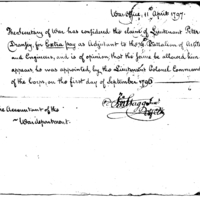 War Office, 11th April 1797.
The Secretary of War has considered the claim of Lieutenant Peter
for Extra pay as Adjutant to the Battalion of
and Engineers, and is of opinion, that the same be allowed him
appears he was appointed by the Lieutenant Colonel
of the Corps, on the first day of September
Accountant of the
War department.